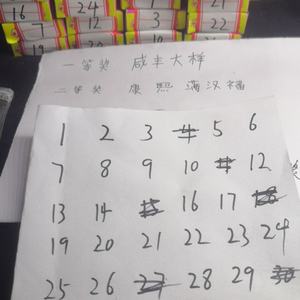 16 24 12 14
7 22 3
19 4
一等奖 咸丰大样
二等奖 康熙 满汉福
1 2 3 4 5 6
7 8 9 10 11 12
13 14 15 16 17 18
19 20 21 22 23 24
25 26 27 28 29 30